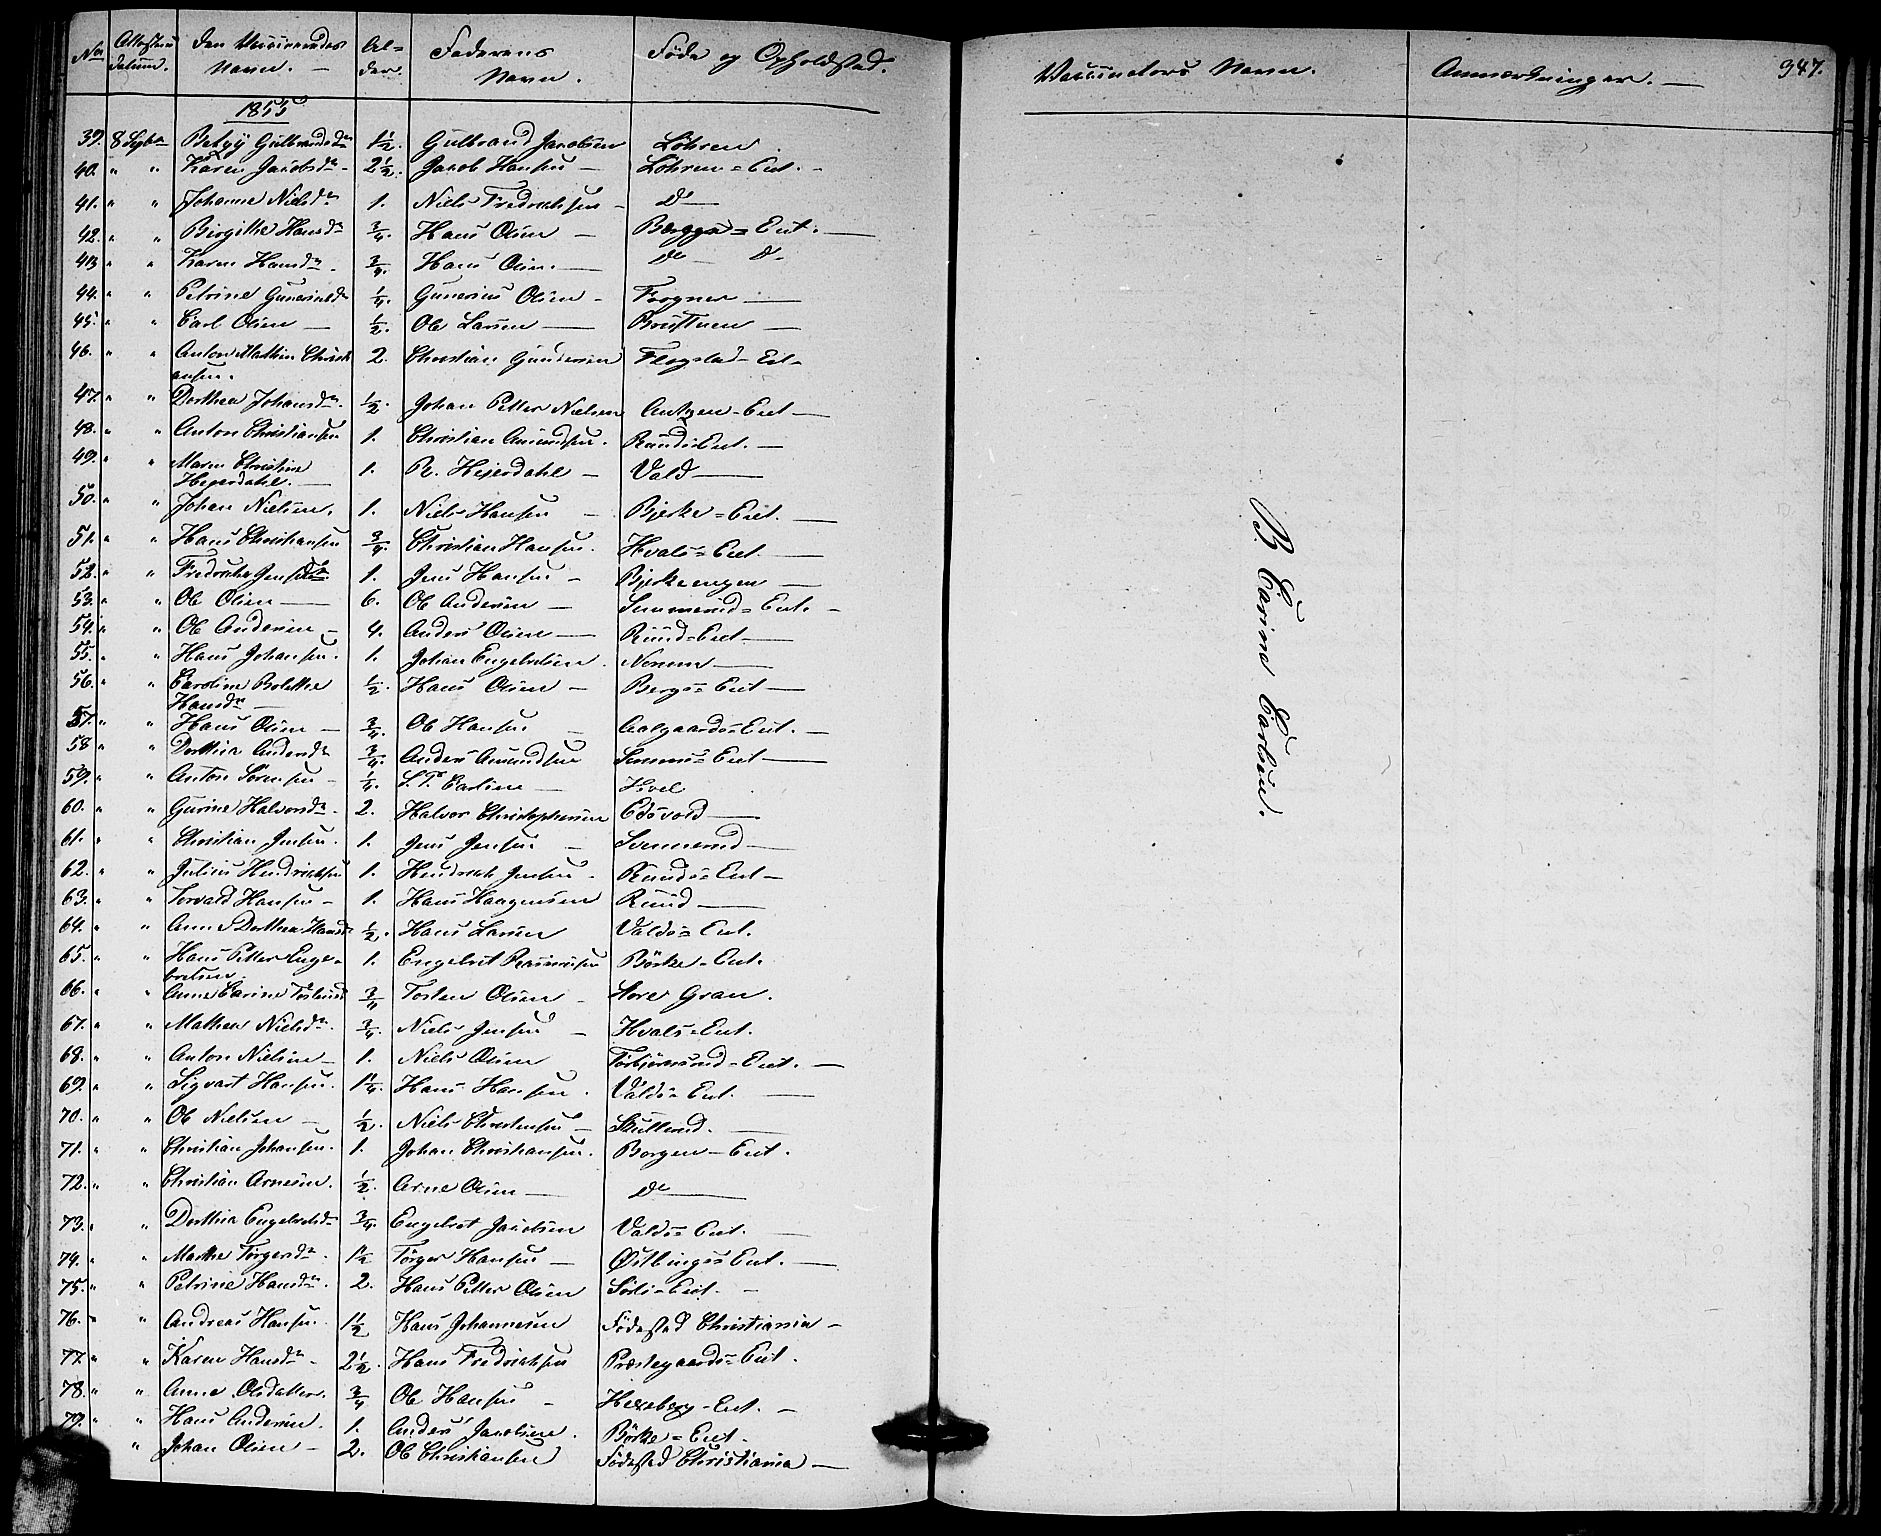 No Attestens datum. Den Vaccineredes Navn. — Al- der. Faderens Navn. Føde og Opholdsted.
1855
39. 8 Septbr Betzy Gulbrandsdr 1½. Gulbrand Jacobsen Löhren
40. " " Karen Jacobsdr - 2½. Jacob Hansen — Löhren-Eiet. -
41. " " Johanne Nielsdr 1. Niels Fredrichsen - Do —
42. " " Birgithe Hansdr ¾. Hans Olsen — Eiet. —
43 " " Karen Hansdr. ¾. Hans Olsen. — do — do
44. " " Petrine Guneriusdr ¼. Gunerius Olsen - Frogner —
45. " " Carl Olsen — ½. Ole Larsen — —
46. " " Anton Mathias Christi 2. Christian Gundersen Flogstad - Eiet -
ansen.
47. " " Dorthea Johansdr. ½. Johan Petter Nielsen Eiet —
48. " " Anton Christiansen 1. Christian Amundsen. Ruuds Eiet. —
49. " " Maren Christine 1. P. Hejerdahl — Vald —
Hejerdahl. —
50. " " Johan Nielsen. 1. Niels Hansen — Bjerke=Eiet. —
51. " " Hans Christiansen ¾. Christian Hansen. Hvals=Eiet. —
52. " " Fredrikke Jensdr. 1. Jens Hansen - Bjerkeengen —
53. " " Ole Olsen — 6. Ole Andersen — Eiet. -
54. " " Ole Andersen - 4. Anders Olsen — Ruud=Eiet —
55. " " Hans Johansen. 1. Johan Engebretsen. —
56. " " Caroline Bolethe ½. Hans Olsen — Bergs=Eiet —
Hansdr —
57. " " Hans Olsen — ¾. Ole Hansen — Aalgaards=Eiet. -
58 " " Dorthea Andersdr ¾. Anders Amundsen Eiet —
59. " " Anton Sörensen - ¼. S. T. Carlsen — Hvel
60. " " Gurine Halvorsdr. 2. Halvor Christophersen Edsvold —
61. " " Christian Jensen. 1. Jens Jensen — Svennerud —
62. " " Julius Hendrichsen 1. Hendrich Jensen - Ruuds=Eiet —
63. " " Torvald Hansen - 1. Hans Haagensen Ruud —
64. " " Anne Dorthea Hansdr ½. Hans Larsen Valds=Eiet.
65. " " Hans Petter Enge- 1. Engebret Rasmussen Börke-Eiet.
bretsen
66. " " Anne Carine Torstensd ¾ Tosten Olsen - Store Gran.
67. " " Mathea Nielsdr. ¾. Niels Jensen — Hvals=Eiet.
68. " " Anton Nielsen - 1. Niels Olsen Torbjörnsrud=Eiet. —
69. " " Sigvart Hansen. 1¼. Hans Hansen. Valds=Eiet. —
70. " " Ole Nielsen — ½. Niels Christensen — Skullerud. —
71. " " Christian Johansen. 1. Johan Christiansen. Borgen-Eiet.
72. " " Christian Arnesen. ½. Arne Olsen — Do —
73. " " Dorthea Engebretsdr ¾. Engebret Jacobsen Valds=Eiet. —
74. " " Mathe Torgersdr. 1½ Torger Hansen — Østbinges=Eiet. —
75. " " Petrine Hansdr. 2. Hans Petter Olsen Eiet. -
76. " " Andreas Hansen. 1½ Hans Johannesen Födested Christiania -
77. " " Karen Hansdr. 2½. Hans Fredrichsen Præstegaards=Eiet.
78. " " Anne Olsdatter. ¾ Ole Hansen - Hexeberg-Eiet. -
79. " " Hans Andersen. 1. Anders Jacobsen. Börke=Eiet.
" Johan Olsen - 2. Ole Christiansen Födested Christiania —
Vaccinators Navn. Anmærkninger. — 347.
B Carine Carlsen.